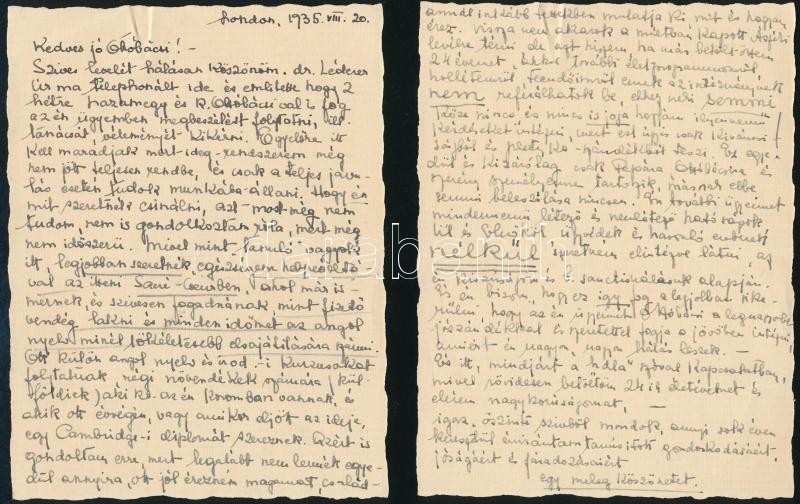 London, 1935. VIII. 20.
Kedves jó Okóbácsi! –
Szives levelét hálásan köszönöm. dr. Léderer
úr ma telephonált ide és emlitette hogy 2
hétre hazamegy és R. Okóbácsival is fog
az én ügyemben megbeszélést folytatni,
tanácsát, véleményét kikérni. Egyelőre itt
kell maradjak mert ideg-rendszerem még
nem jött teljesen rendbe, és csak a teljes javu-
lás esetén tudok munkába állani. Hogy én
mit szeretnék csinálni, azt most még nem
tudom, nem is gondolkoztam róla, mert még
nem időszerű. Mivel mint tanuló vagyok
itt, legjobban szeretnék, egészségem helyreálltá-
val az itteni Sacré-Coeurben, ahol már is-
mernek, és szivesen fogadnának mint fizető
vendég lakni és minden időmet az angol
nyelv minél tökéletesebb elsajátitására
Ott külön angol nyelv és irod.-i kurzusokat
folytatnak régi növendékek számára / kül-
földiek / akik az én koromban vannak, és
akik ott évvégén, vagy amikor eljött az ideje,
egy Cambridge-i diplomát szereznek. Azért is
gondoltam erre, mert legalább nem lennék egye-
dül annyira, ott jól érezném magamat, család-
annál inkább tettekben mutatja ki mit és hogyan
érez. Vissza nem akarok a multban kapott
levélre térni de azt hiszem ha már betöltöttem
24 évemet, akkor további életprogrammomról,
hollétemről teendőimről ennek az intézménynek
nem refválhatok be, ehhez neki semmi
köze nincs és nincs is joga hozzám ilyennemű
kérdéseket intézni, mert ezt ugyis csak kiváncsi
ságból és pletyka-szándékból teszi. Ez egye-
dül és kizárólag csak Papára Okóbácsira és
szerény személyemre tartozik, másnak ebbe
semmi beleszólása nincsen. Én további ügyeimet
mindennemű létező és nemlétező hatóságok
tól és hasonló emberek
nélkül szeretném elintézve látni, az
én és sanctionálások alapján.
És én bizom, hogy ez igy fog a legjobban sike-
rülni, hogy az én ügyeimet Okóbácsi a legnagyobb
jószándékkal és szeretettel fogja a jövőben intézni,
amiért én nagyon, nagyon hálás leszek. –
És itt, mindjárt a "hála" szóval kapcsolatban,
mivel rövidesen betöltöm 24-ik életévemet és
elérem nagykorúságomat, –
igaz, őszinte szivből mondok, annyi sok éven
keresztül irántam tanusitott gondoskodásáért,
jóságáért és fáradozásáért
egy meleg köszönetet.
darabanth.com